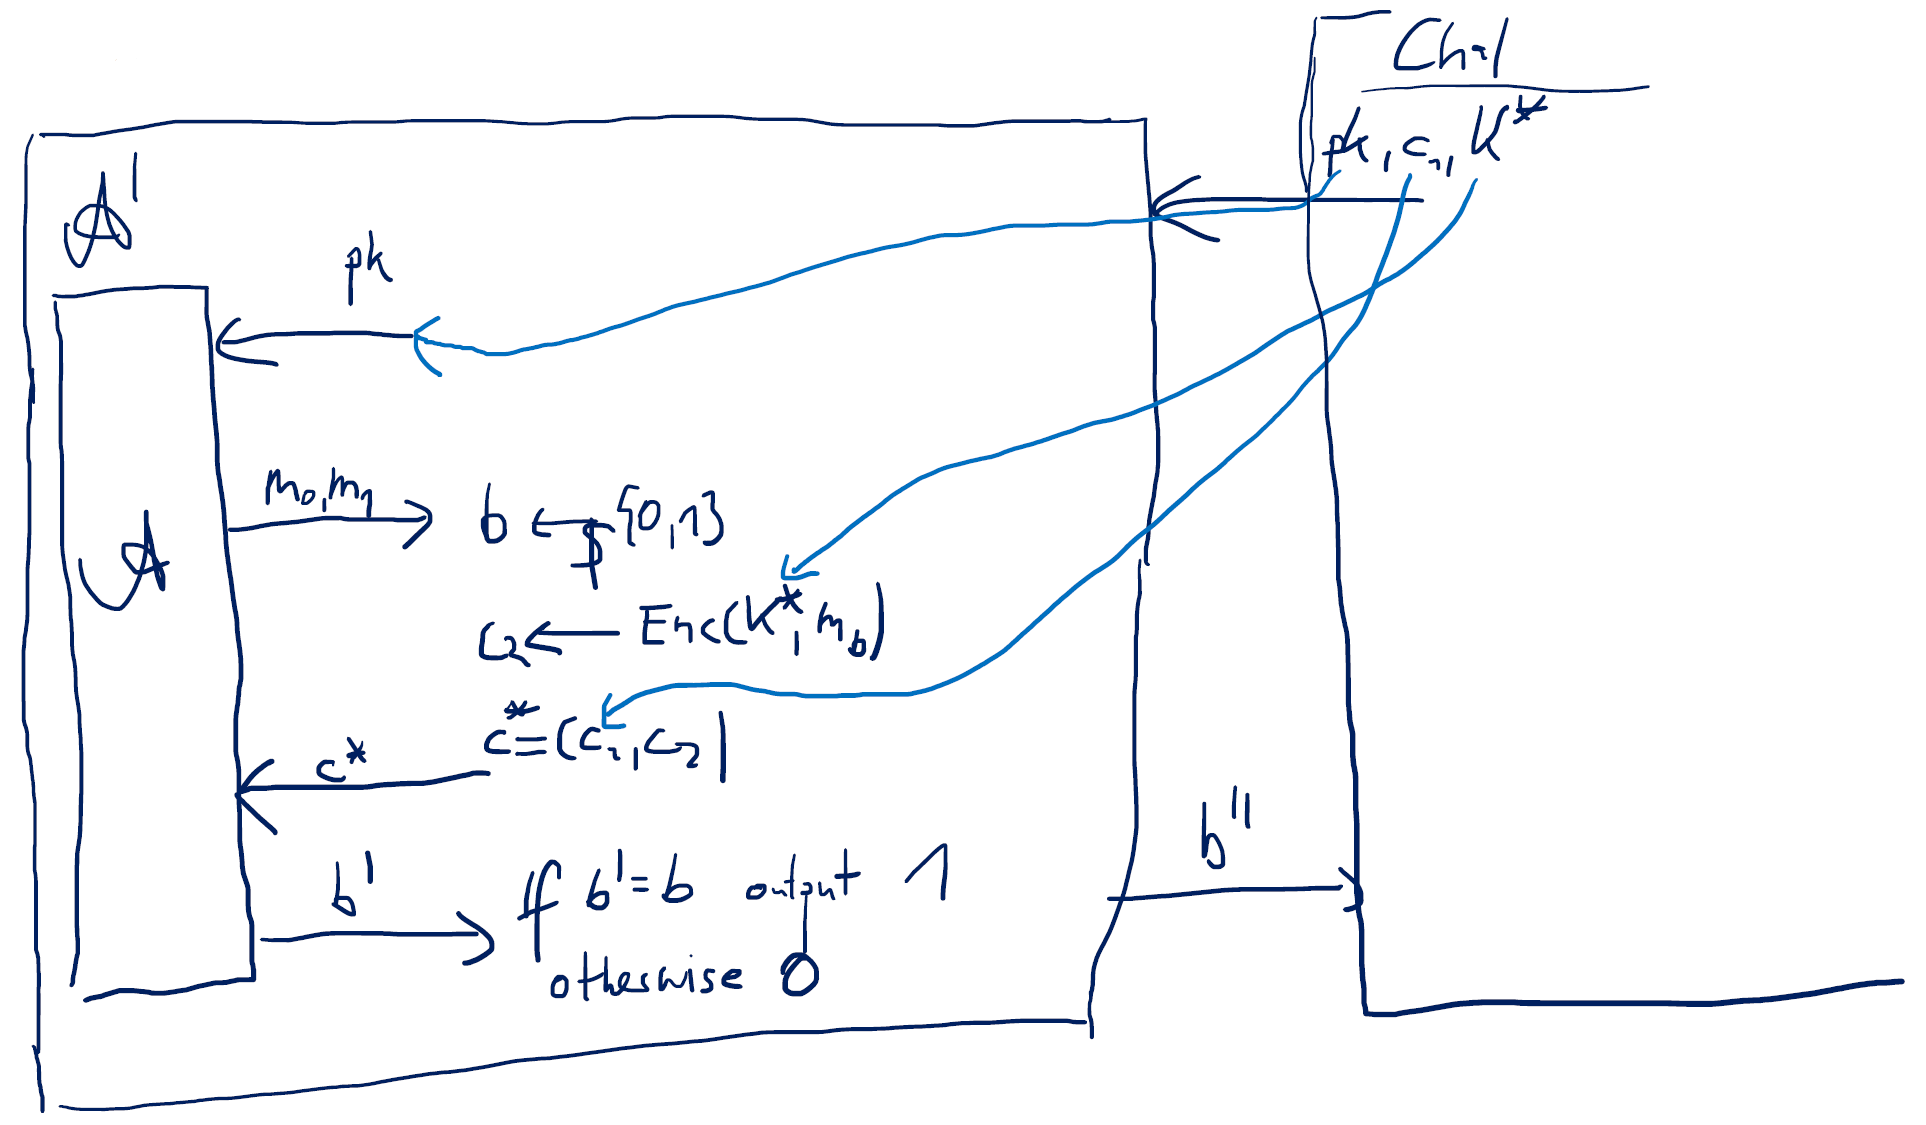 Chal
pk, c₁, K*
A'
pk
A
m₀, m₁
b ←$ {0,1}
c₂ ← Enc(K*, m_b)
c* = (c₁, c₂)
c*
b'
If b' = b output 1
otherwise 0
b''